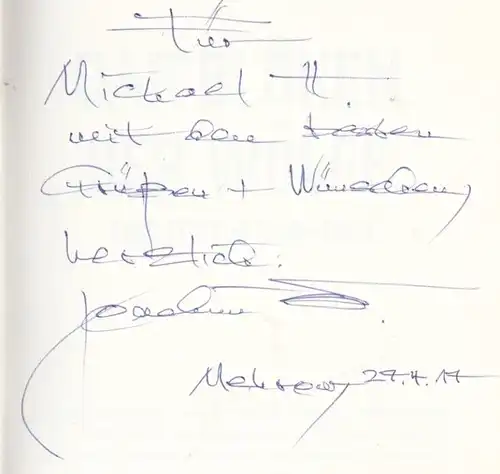 Für
Michael H.
mit den besten
Grüßen + Wünschen,
herzlich:
Joachim
27.4.17